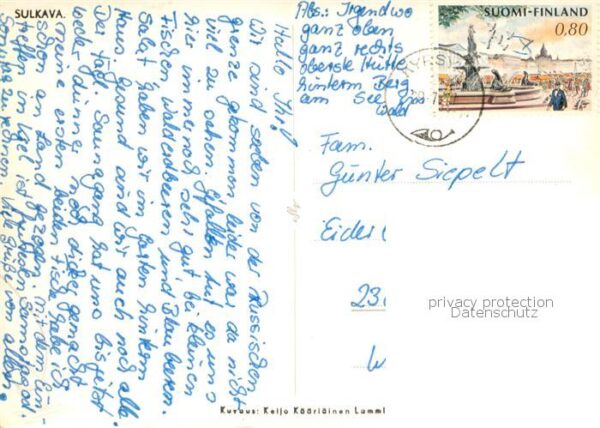 SULKAVA.
Hallo Ihr!
Wir sind soeben von der Russischen
grenze gekommen leider war da nicht
viel zu sehen. Gefallen tut es uns
hier immer noch sehr gut bei kleinen
Fischen Walerdbeeren und Blaubeeren.
Salat haben wir im Garten hinterm
Haus. Gesund sind wir auch noch alle.
Der tägl. Saunagang hat uns bis jetzt
weder dünner noch dicker gemacht
meine ersten beiden Fische habe ich
schon an Land gezogen. Mit dem Ein-
treffen im Igel ist
zu können. Viele Grüße von allen
Abs.: Irgendwo
ganz oben
ganz rechts
oberste Hütte
hinterm Berg
am See vorm
Wald
SUOMI-FINLAND
0,80
Fam.
Günter Siepelt
Eider
23
W
privacy protection
Datenschutz
Kuvaus: Keijo Kääriäinen Lammi